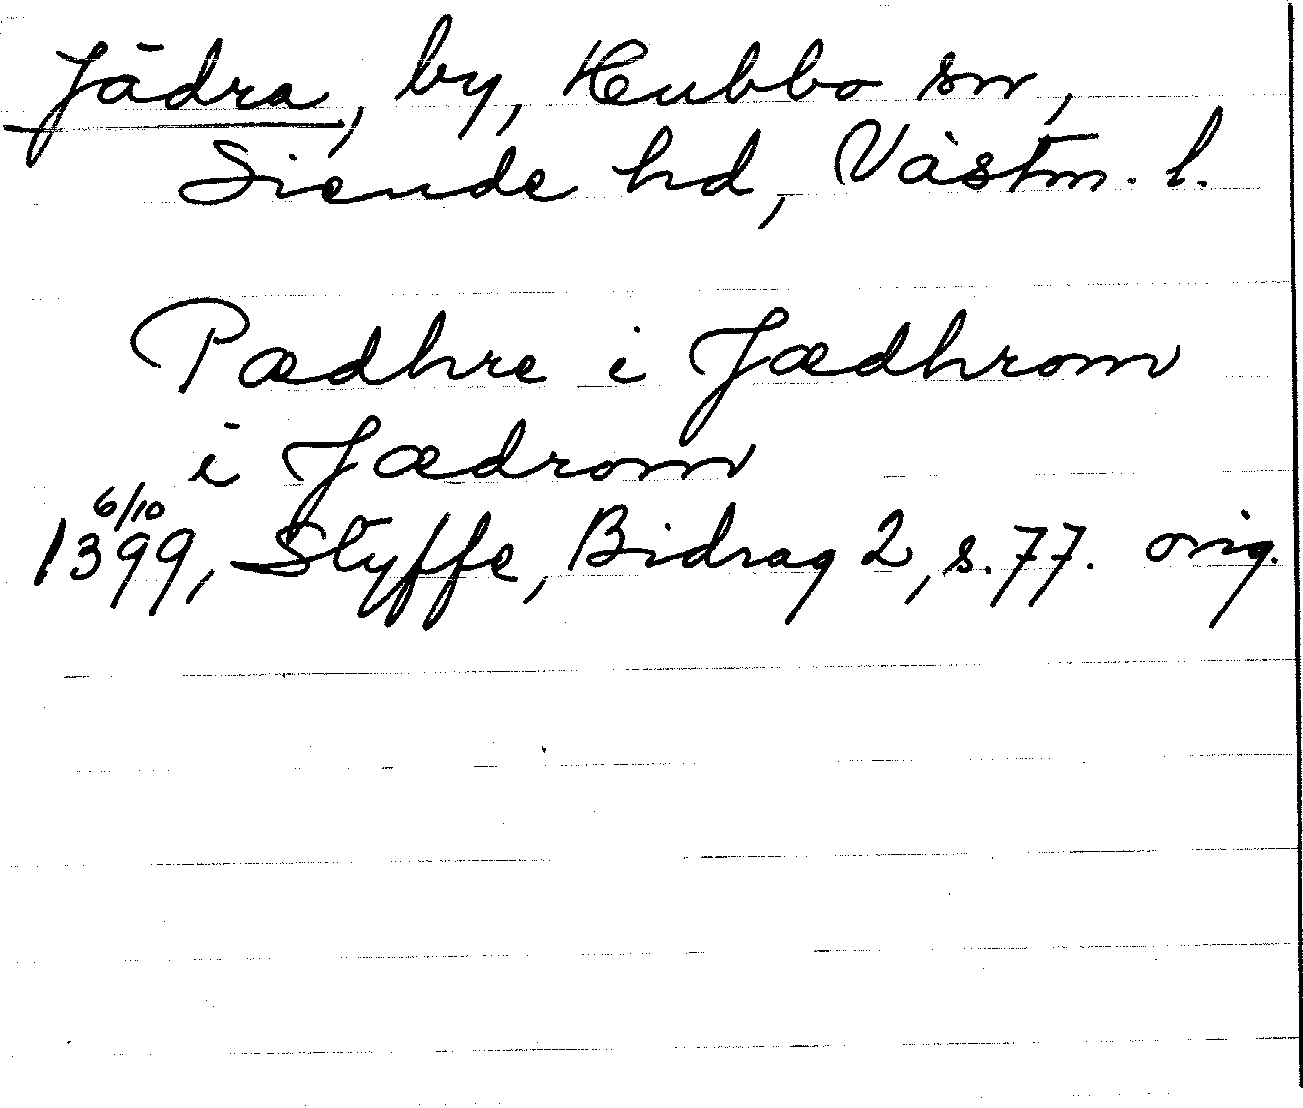 Jädra, by, Hubbo sn,
Siende hd, Västm. l.
Pædhre i Jædhrom
i Jædrom
6/10
1399, Styffe, Bidrag 2, s. 77. orig.